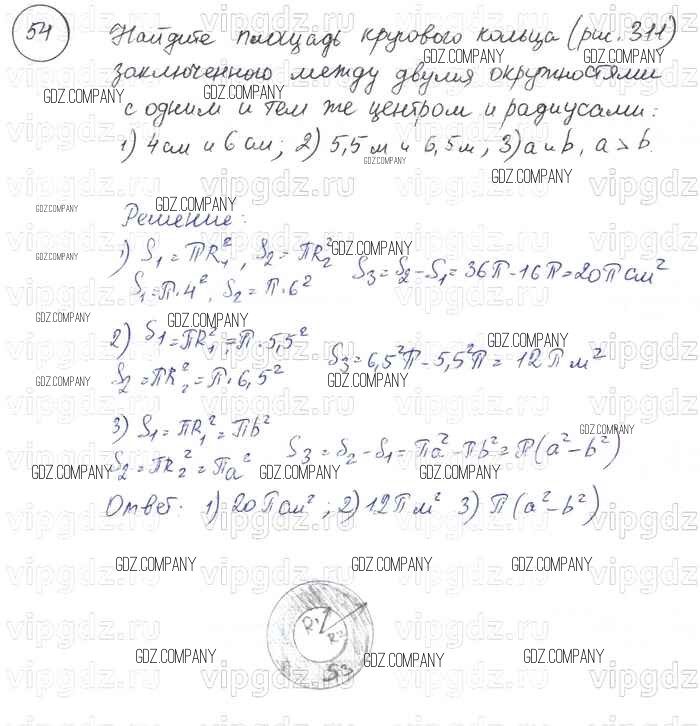 54 Найдите площадь кругового кольца (рис. 311)
заключенного между двумя окружностями
с одним и тем же центром и радиусами:
1) 4 см и 6 см; 2) 5,5 м и 6,5 м; 3) a и b, a > b.
Решение:
1) S₁ = πR₁², S₂ = πR₂²
S₁ = π·4², S₂ = π·6² S₃ = S₂ - S₁ = 36π - 16π = 20π см²
2) S₁ = πR₁² = π·5,5²
S₂ = πR₂² = π·6,5² S₃ = 6,5²π - 5,5²π = 12π м²
3) S₁ = πR₁² = πb²
S₂ = πR₂² = πa² S₃ = S₂ - S₁ = πa² - πb² = π(a² - b²)
Ответ: 1) 20π см²; 2) 12π м² 3) π(a² - b²)
R₁ R₂
S3
GDZ.COMPANY
vipgdz.ru